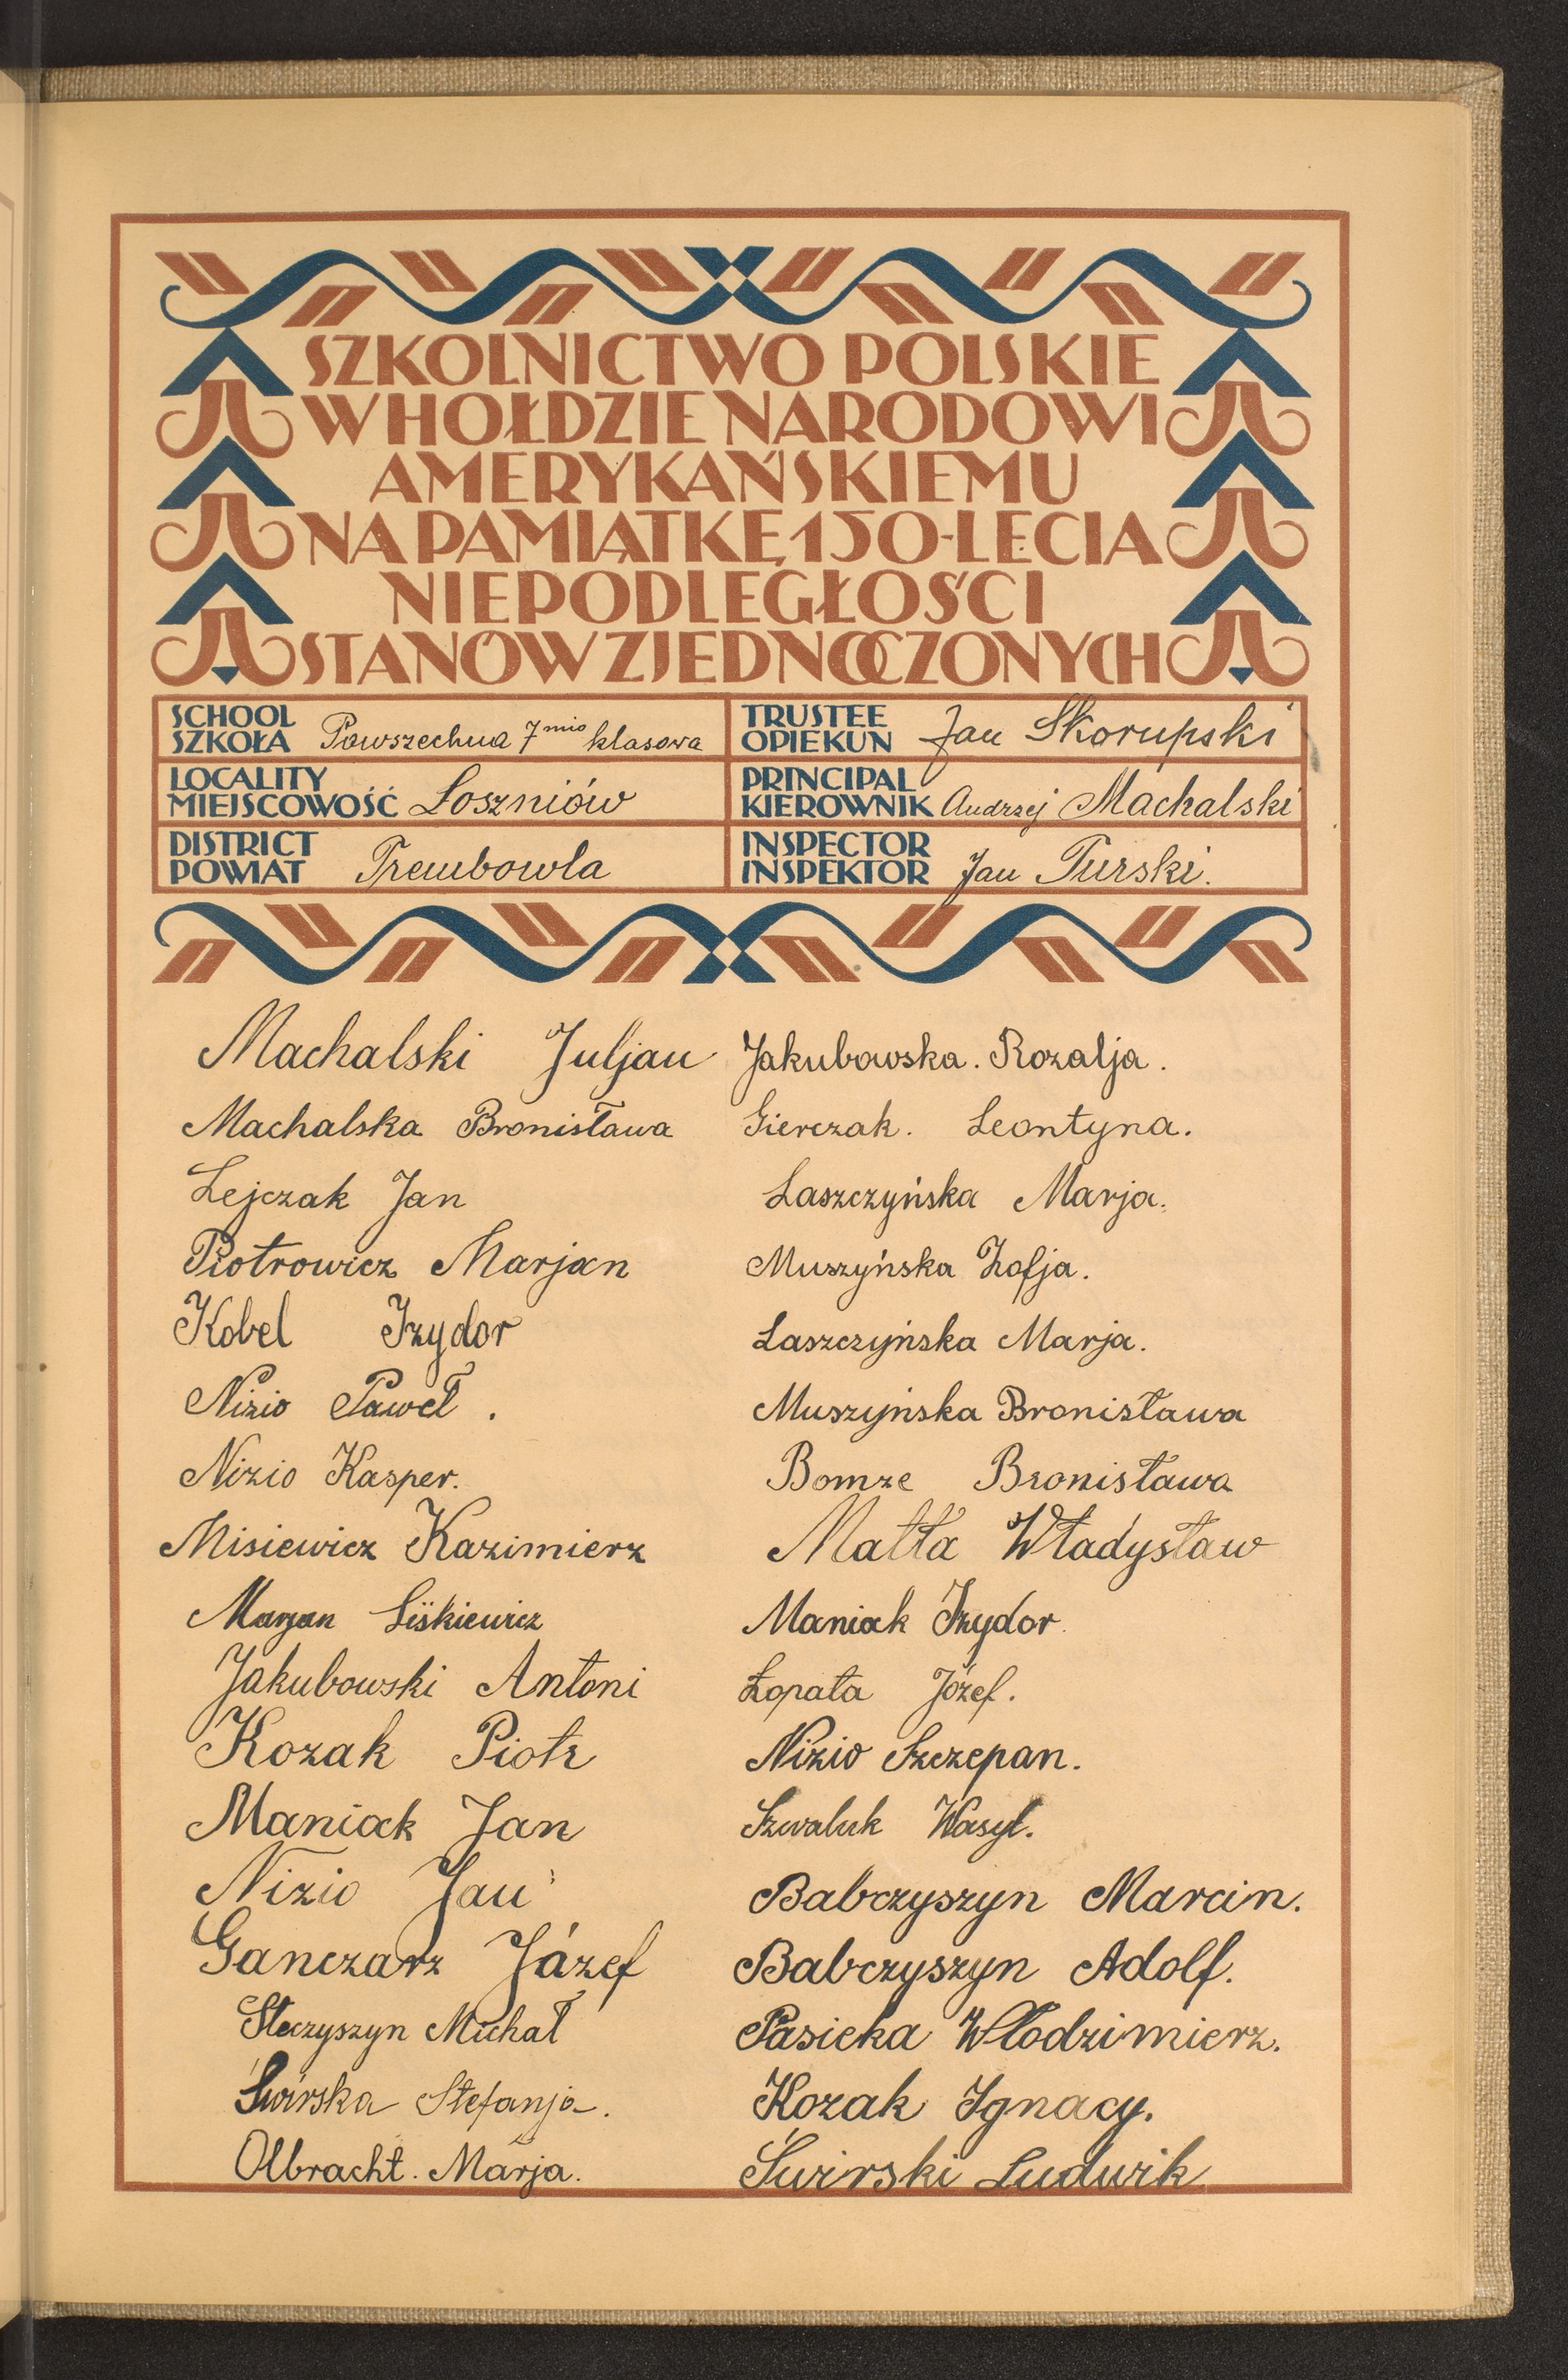 SZKOLNICTWO POLSKIE
W HOŁDZIE NARODOWI
AMERYKAŃSKIEMU
NA PAMIĄTKĘ 150-LECIA
NIEPODLEGŁOŚCI
STANÓW ZJEDNOCZONYCH
SCHOOL
SZKOŁA Powszechna 7mio klasowa
TRUSTEE
OPIEKUN Jan Skorupski
LOCALITY
MIEJSCOWOŚĆ Łoszniów
PRINCIPAL
KIEROWNIK Andrzej Machalski
DISTRICT
POWIAT Trembowla
INSPECTOR
INSPEKTOR Jan Turski.
Machalski Juljan
Machalska Bronisława
Lejczak Jan
Piotrowicz Marjan
Kobel Izydor
Nizio Paweł.
Nizio Kasper.
Misiewicz Kazimierz
Marjan Liśkiewicz
Jakubowski Antoni
Kozak Piotr
Maniak Jan
Nizio Jan
Ganczarz Józef
Steczyszyn Michał
Świrska Stefanja.
Olbracht. Marja.
Jakubowska. Rozalja.
Gierczak. Leontyna.
Laszczyńska Marja.
Muszyńska Zofja.
Laszczyńska Marja.
Muszyńska Bronisława
Bomze Bronisława
Matła Władysław
Maniak Izydor.
Łopata Józef.
Nizio Szczepan.
Szwaluk Wasyl.
Babczyszyn Marcin.
Babczyszyn Adolf.
Pasieka Włodzimierz.
Kozak Ignacy.
Świrski Ludwik